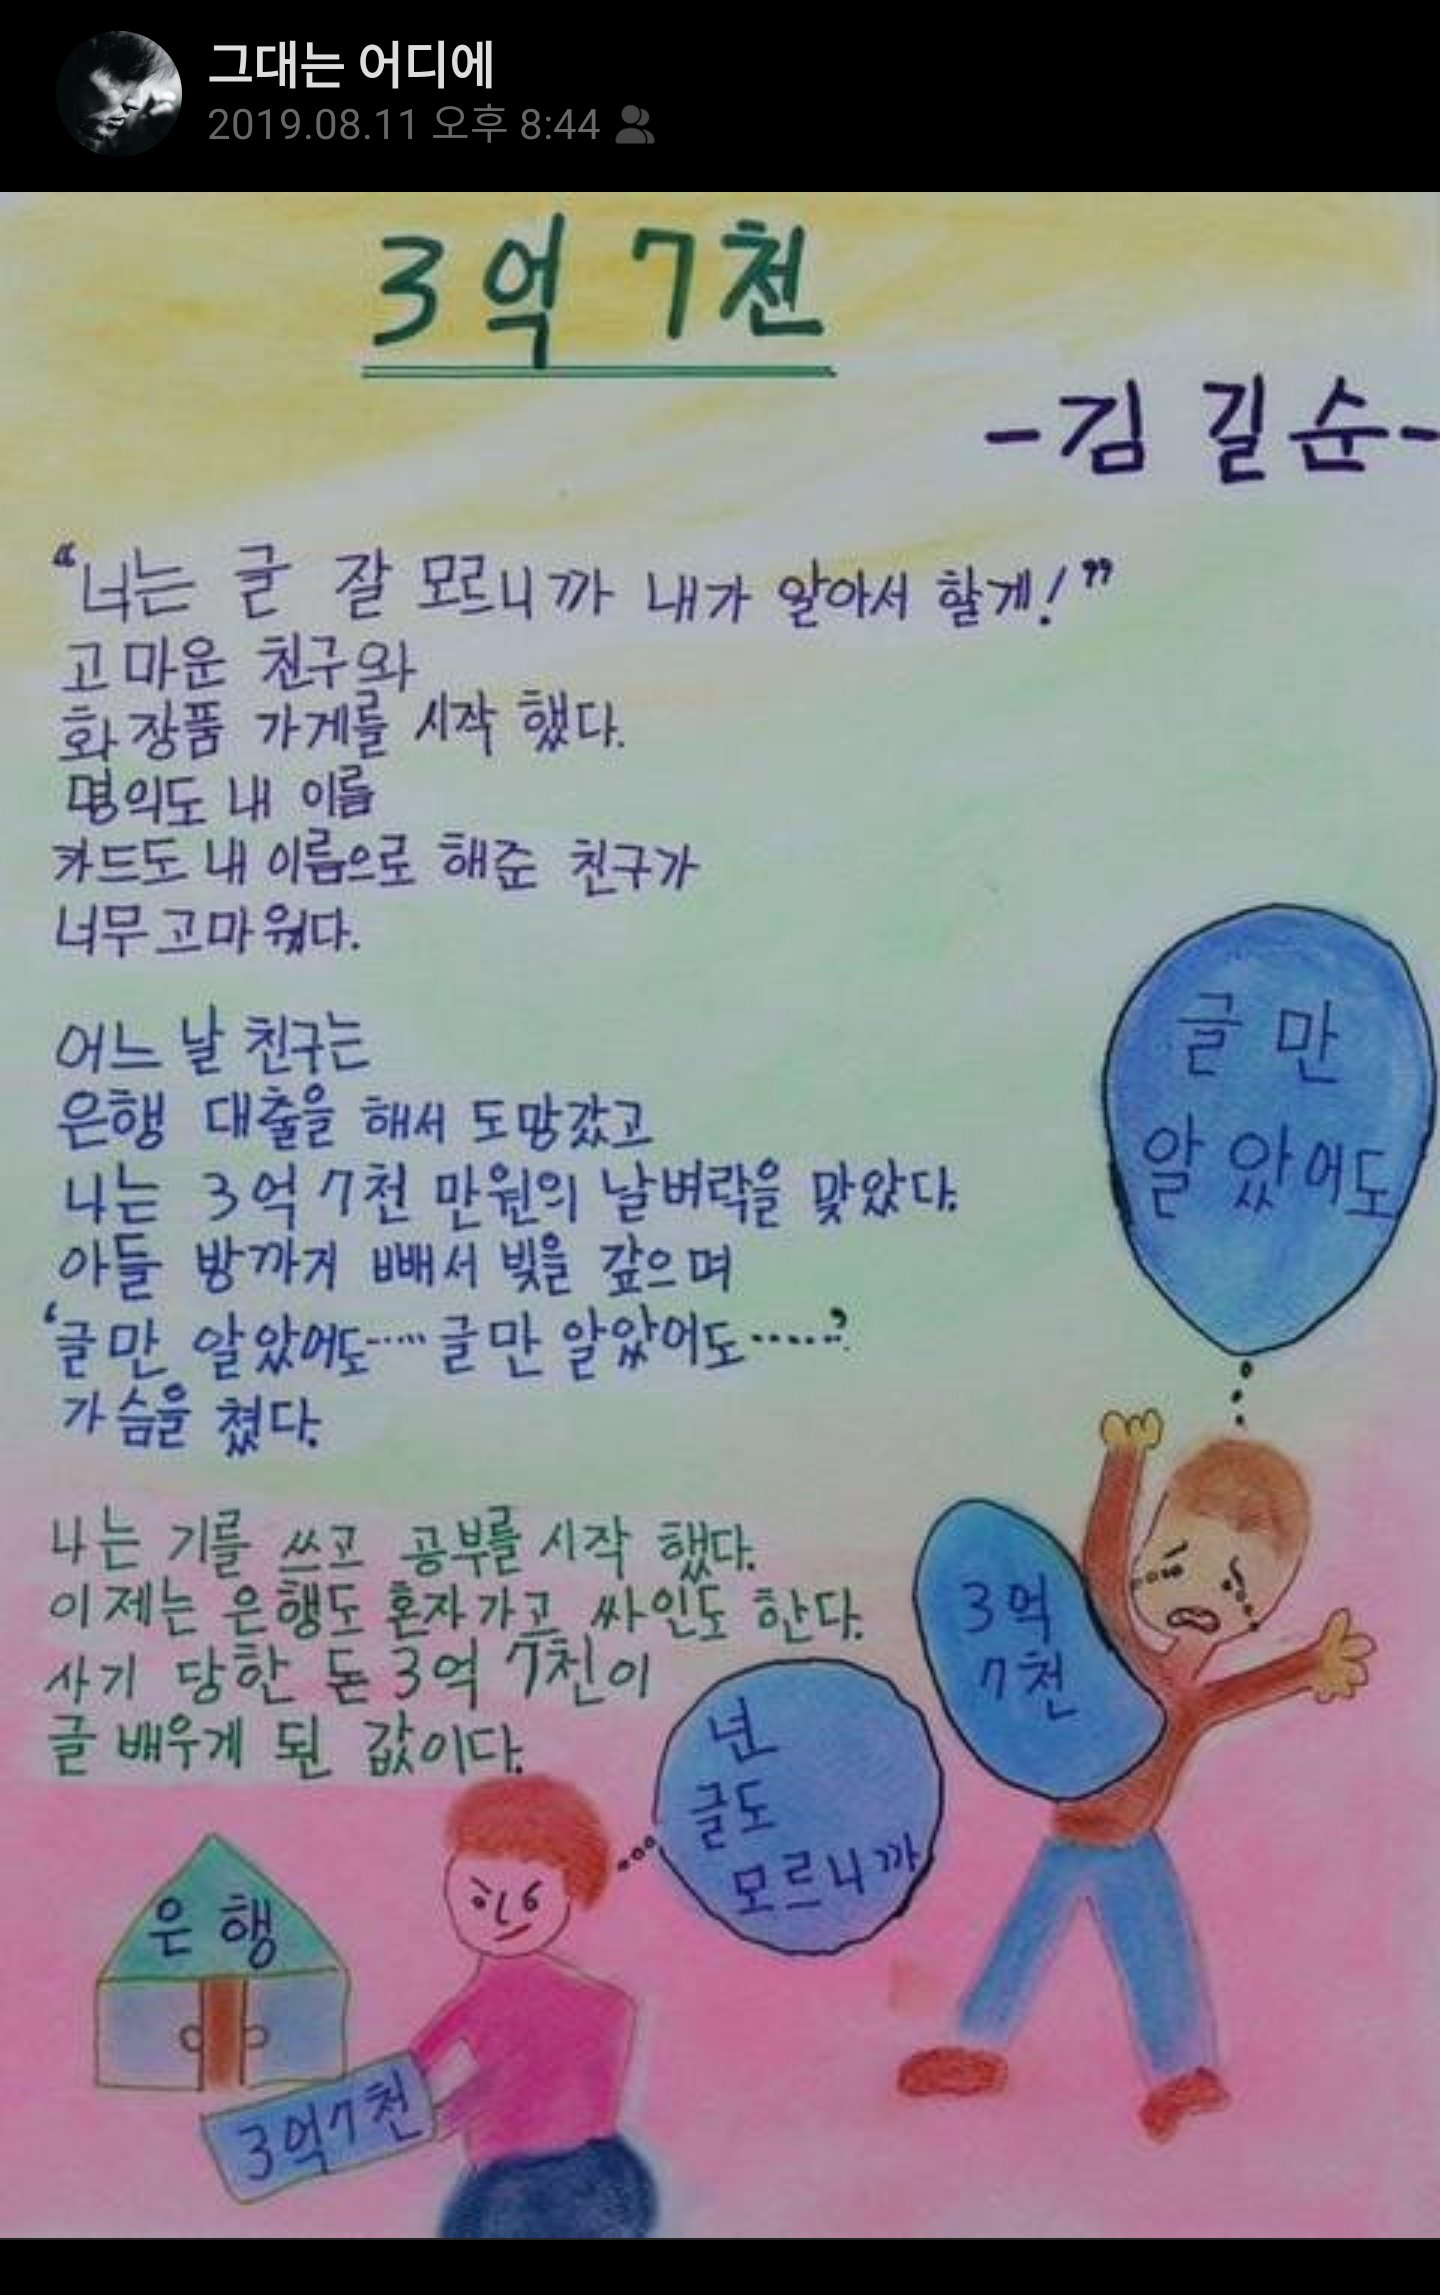 그대는 어디에
2019.08.11 오후 8:44
3억 7천
-김 길순-
“너는 글 잘 모르니까 내가 알아서 할게!”
고마운 친구와
화장품 가게를 시작 했다.
명의도 내 이름
카드도 내 이름으로 해준 친구가
너무 고마웠다.
어느 날 친구는
은행 대출을 해서 도망갔고
나는 3억 7천 만원의 날벼락을 맞았다.
아들 방까지 빼서 빚을 갚으며
‘글만 알았어도····· 글만 알았어도·····’
가슴을 쳤다.
나는 기를 쓰고 공부를 시작 했다.
이제는 은행도 혼자가고 싸인도 한다.
사기 당한 돈 3억 7천이
글 배우게 된 값이다.
글 만
알았어도
3억
7천
넌
글도
모르니까
은행
3억7천